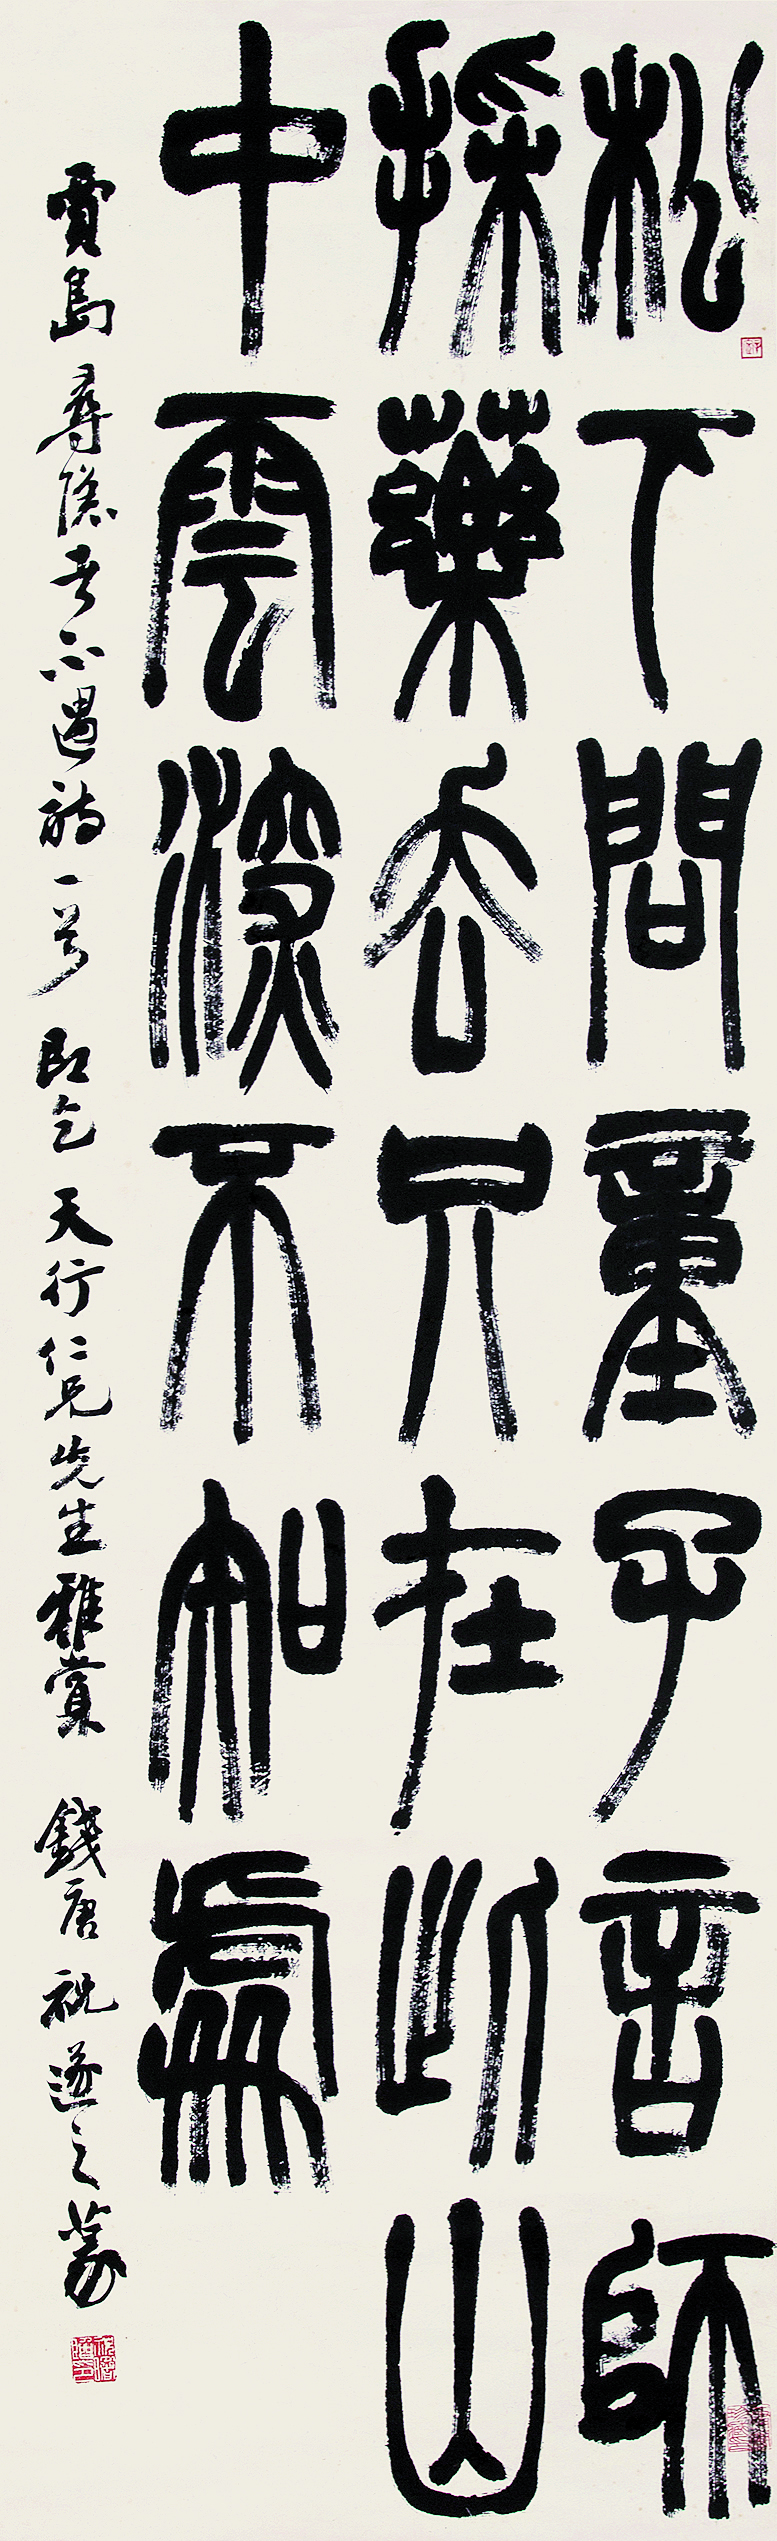 松下問童子言師
採藥去只在此山
中雲深不知處
賈島尋隱者不遇詩一首即乞天行仁兄先生雅賞錢唐祝遂之篆